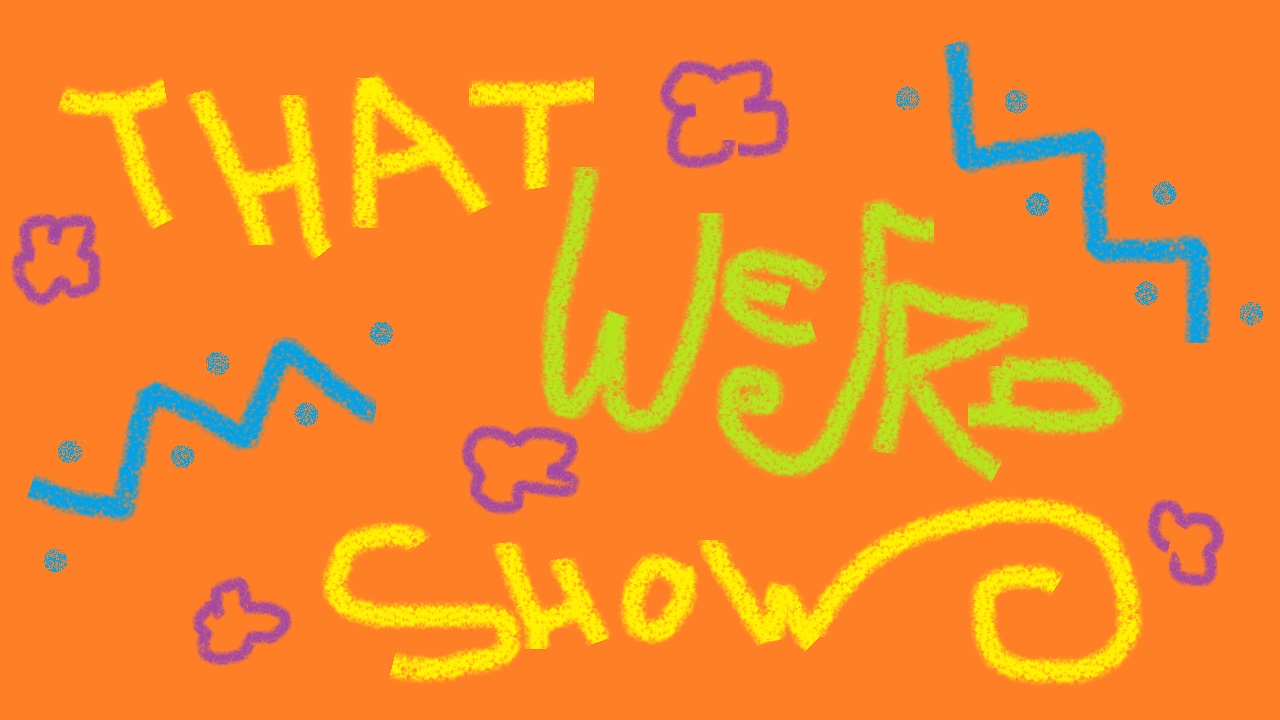 THAT
WEIRD
SHOW